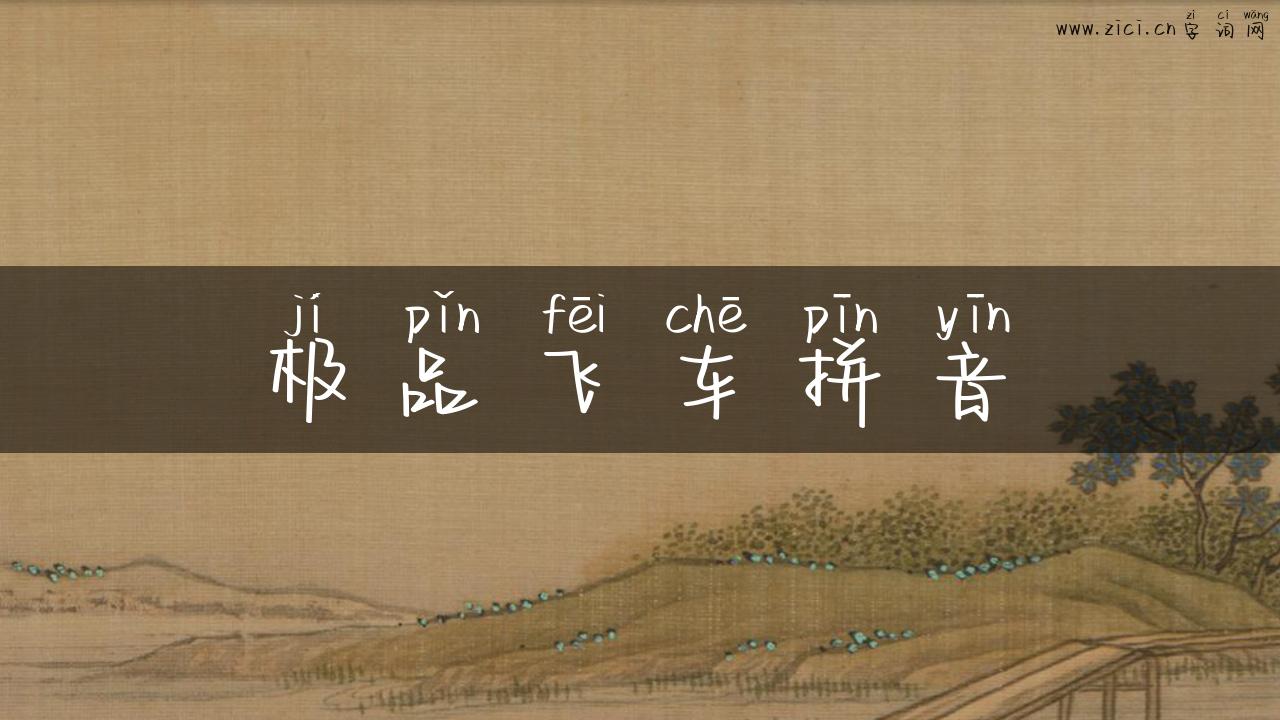 zì cí wǎng
www.zici.cn 字 词 网
jí pǐn fēi chē pīn yīn
极 品 飞 车 拼 音